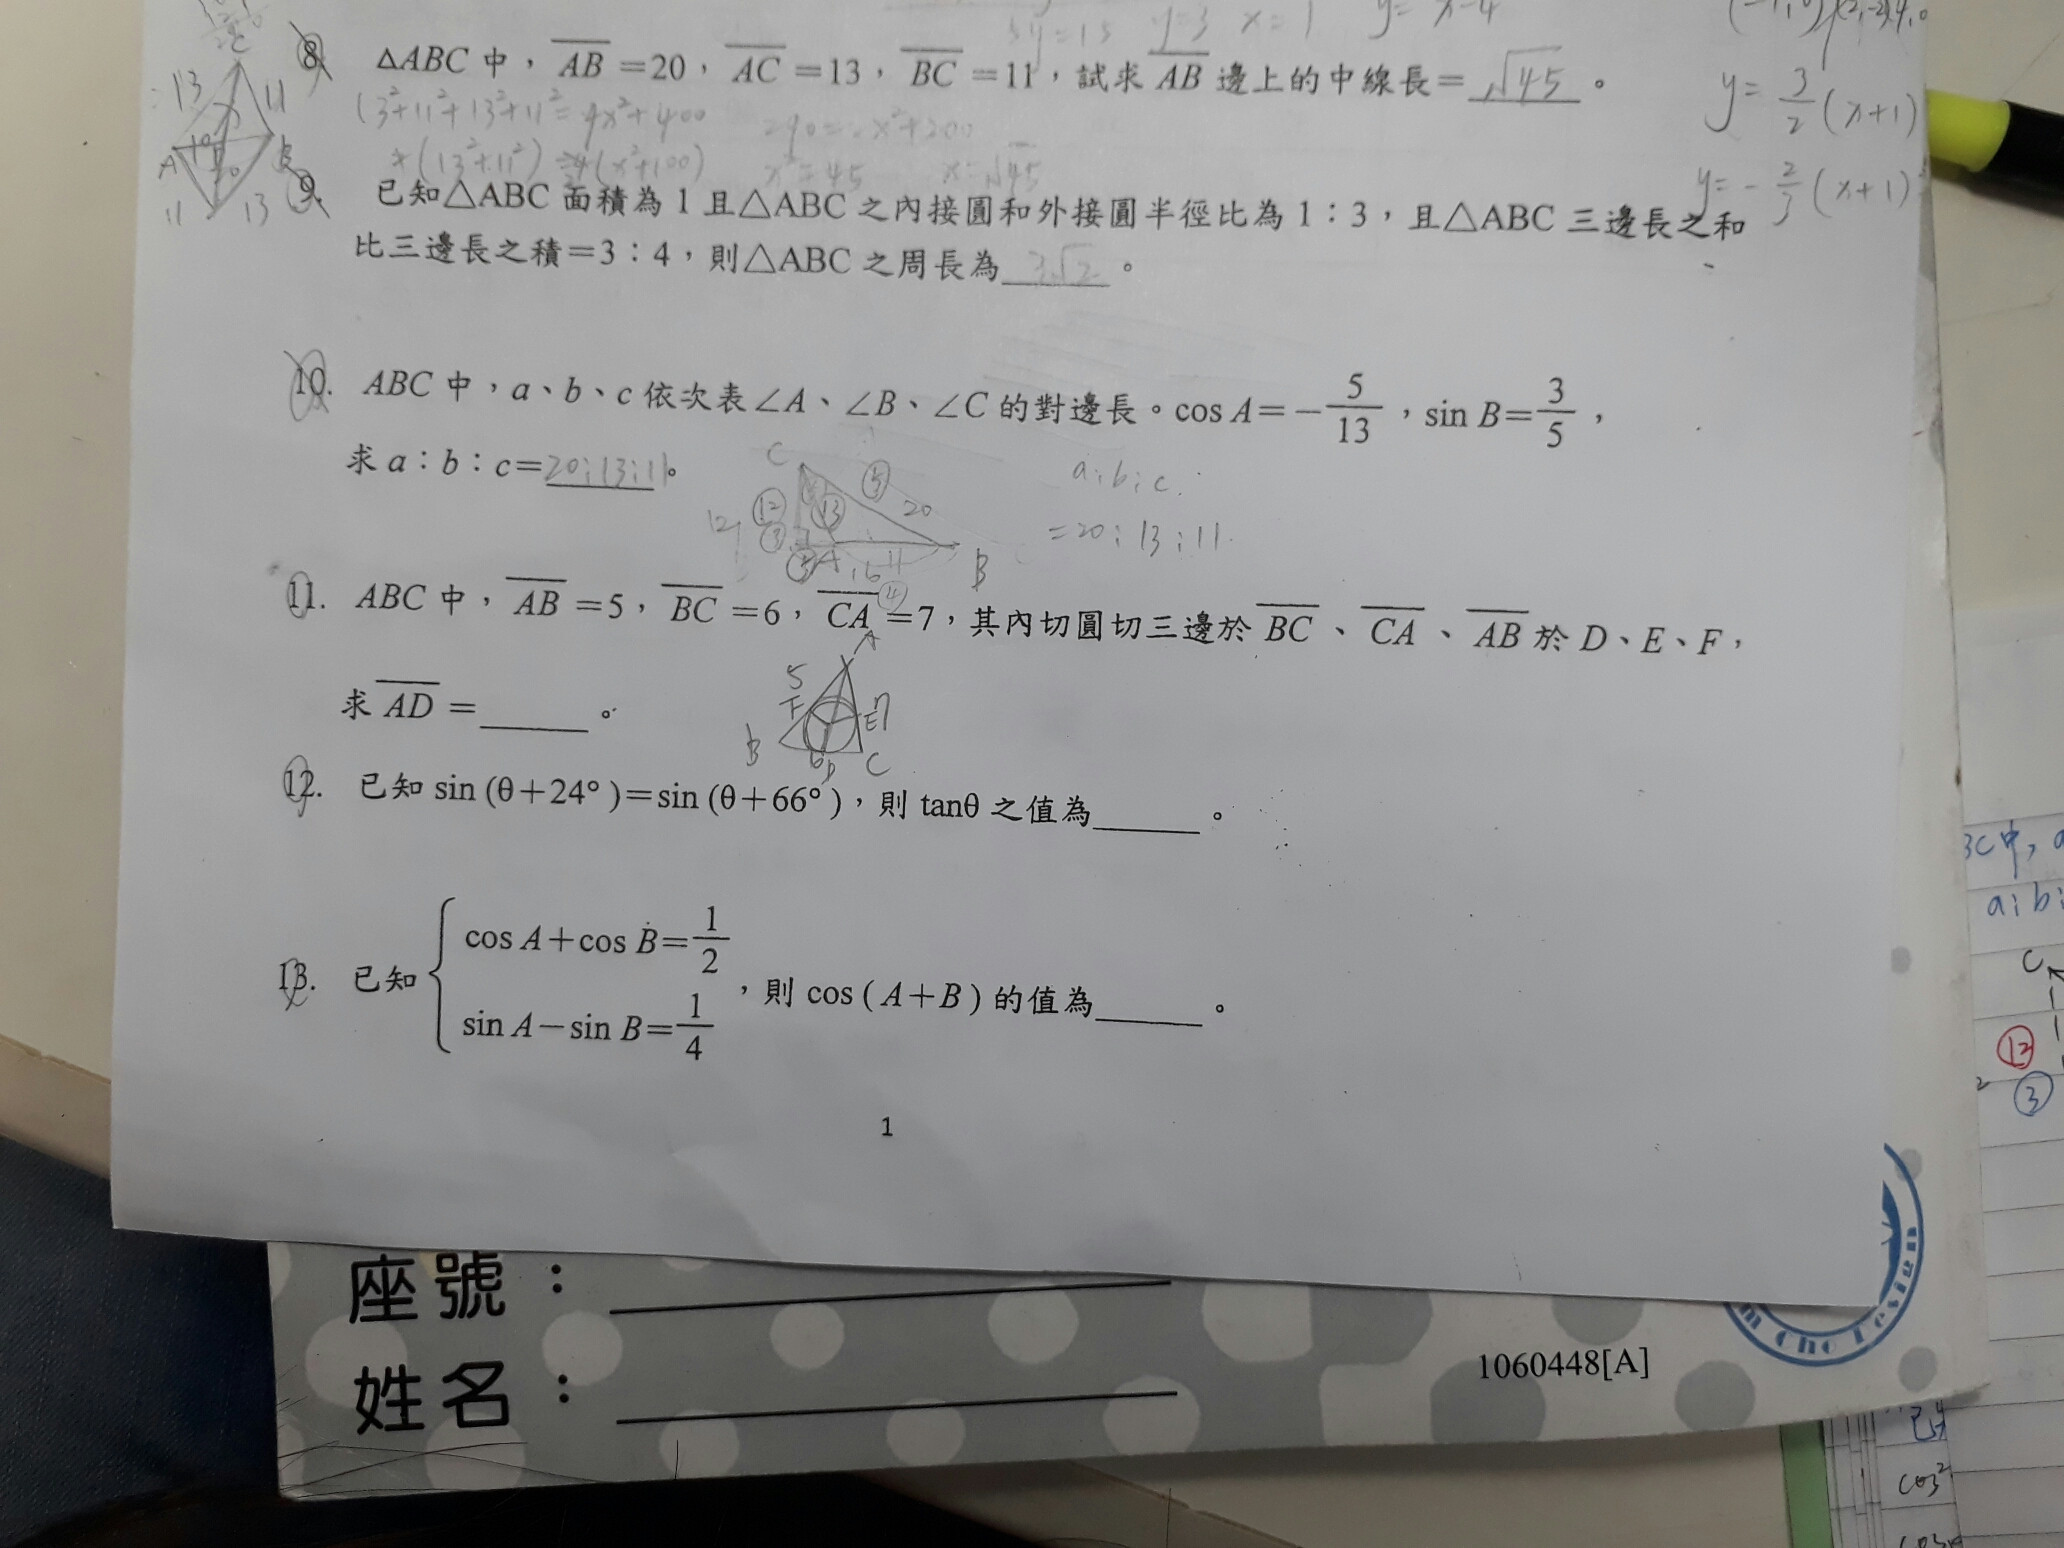 5y=15 y=3 x=1 y= x-4
8. △ABC 中，AB=20，AC=13，BC=11，試求 AB 邊上的中線長=√45。
13 11
13²+11²+13²+11²=4x²+400
(13²+11²) (x²+100) x²=45 x=√45
y= 3/2 (x+1)
y= - 2/3 (x+1)
A B
11 13
9. 已知△ABC 面積為 1 且△ABC 之內接圓和外接圓半徑比為 1：3，且△ABC 三邊長之和
比三邊長之積=3：4，則△ABC 之周長為3√2。
10. ABC 中，a、b、c 依次表∠A、∠B、∠C 的對邊長。cos A=－5/13，sin B=3/5，
求 a：b：c=20:13:11。
C 12 ⑫ ③ ⑬ ⑤ 20 A 16 11 B ④
a:b:c
=20:13:11
11. ABC 中，AB=5，BC=6，CA=7，其內切圓切三邊於 BC、CA、AB 於 D、E、F，
求 AD=______。
A 5 F E 7 B 6 D C
12. 已知 sin (θ+24°)=sin (θ+66°)，則 tanθ 之值為______。
13. 已知 { cos A+cos B=1/2
sin A－sin B=1/4 ，則 cos ( A+B ) 的值為______。
1
座號：
姓名：
1060448[A]
C中,
a:b:
C
⑫
③
cos²